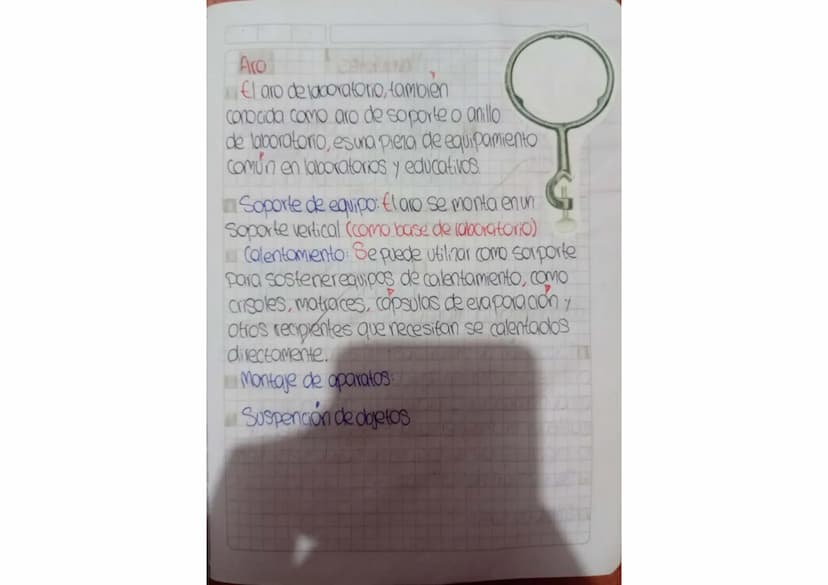 Aro
El aro de laboratorio, también
conocida como aro de soporte o anillo
de laboratorio, es una pieza de equipamiento
común en laboratorios y educativos.
Soporte de equipo: El aro se monta en un
soporte vertical (como base de laboratorio)
Calentamiento: Se puede utilizar como sorporte
para sostener equipos de calentamiento, como
crisoles, matraces, cápsulas de evaporación y
otros recipientes que necesitan se calentados
directamente.
Montaje de aparatos:
Suspención de objetos